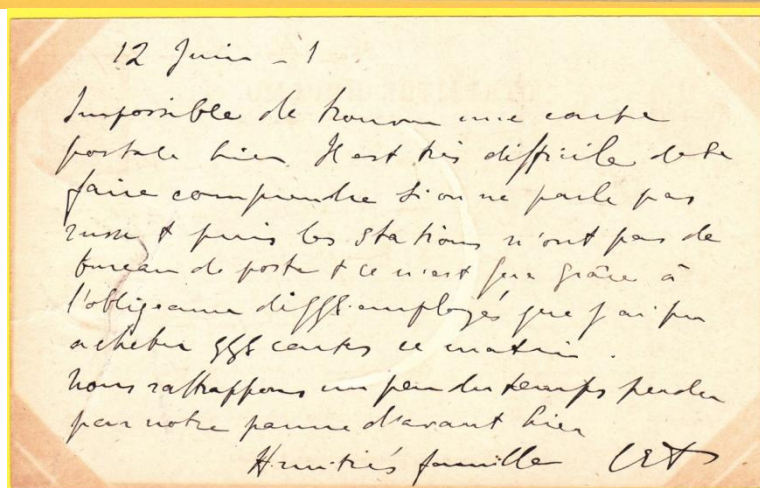 12 Juin - 1
Impossible de trouver une carte
postale hier. Il est très difficile de te
faire comprendre si on ne parle pas
russe + puis les stations n'ont pas de
bureau de poste + ce n'est que grâce à
l'obligeance d employés que j'ai pu
acheter cartes ce matin.
Nous rattrappons un peu du temps perdu
par notre panne d'avant hier
Amitiés famille